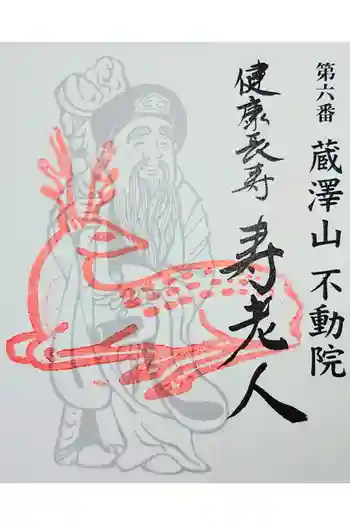 第六番
蔵澤山 不動院
健康長寿
寿老人